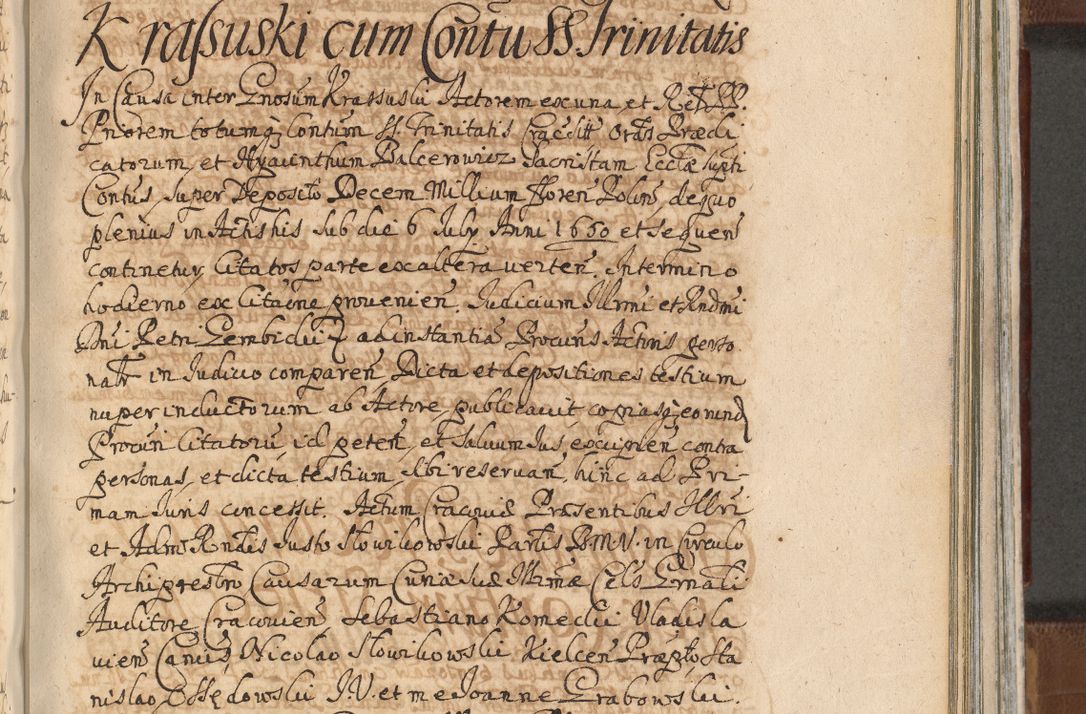 Krassuski cum Contu SS. Trinitatis
In Causa inter Gnosum Krassuski Actorem ex una, et RR. PP.
Priorem totumq Contum SS. Trinitatis Crac Ordis Prædi
catorum, et Hyacinthum Balcerowicz Sacristam Ecclæ supti
Contus, super Deposito Decem Millium floren Polin, de quo
plenius in Actis his sub die 6 July Anni 1650 et sequen
continetur, Citatos parte ex altera verten. In termino
hodierno ex Citaone provenien. Judicium Illrmi et Rndmi
Dni Petri Gembicki ad instantia Procuris Actoris perso
nalr in Judicio comparen Dicta et depositiones testium
nuper inductorum ab Actore, publicavit, copiasq eorund
Procuri Citatoru, id peten, et salvum Jus, excipien contra
personas, et dicta testium, sibi reservan, hinc ad Pri-
mam Juris concessit. Actum Cracoviæ Præsentibus Illri
et Adm Rndis Justo Słowikowski Partis B.M.V. in Circulo
Archipresbro Causarum Curiæ suæ Illrmæ Cels Grnali
Auditore, Cracovien Sebastiano Komecki Vladisla
vien Cancis, Nicolao Słowikowski Kielcen Præpto Sta
nislao Ossędowski J.V. et me Joanne Grabowski.